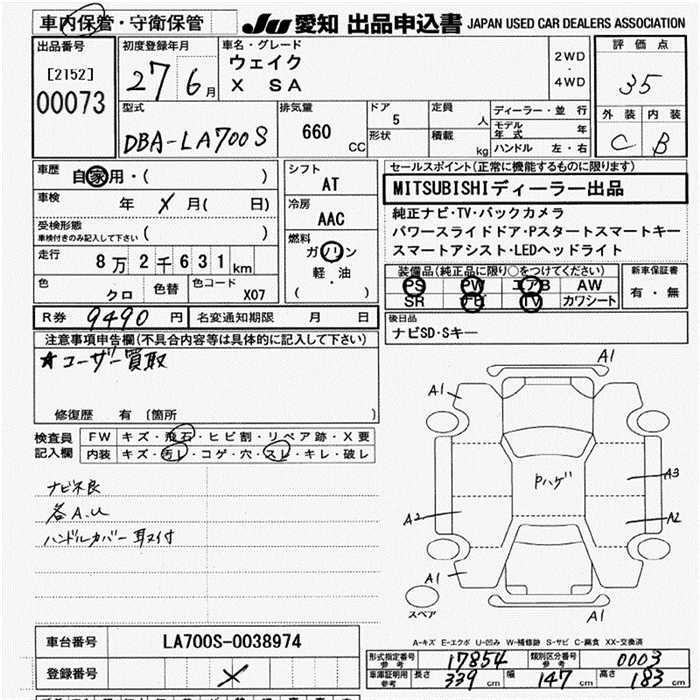 車内保管・守衛保管
JU 愛知 出品申込書 JAPAN USED CAR DEALERS ASSOCIATION
出品番号
[2152]
00073
初度登録年月
27 6月
車名・グレード
ウェイク
X SA
2WD
・
4WD
評価点
35
外装 内装
C B
型式
DBA-LA700S
排気量
660 CC
ドア
5
形状
定員
人
積載
kg
ディーラー・並行
モデル年式 年
ハンドル 左・右
車歴
自家用・( )
車検 年 X 月( 日)
受検形態
車検付きのみ記入して下さい ( )
走行 8万2千631km
色
クロ
色替
色コード
X07
シフト
AT
冷房
AAC
燃料
ガソリン
軽・油
( )
セールスポイント(正常に機能するものに限ります)
MITSUBISHIディーラー出品
純正ナビ・TV・バックカメラ
パワースライドドア・Pスタートスマートキー
スマートアシスト・LEDヘッドライト
装備品(純正品に限り○をつけてください)
PS PW エアB AW
SR ナビ TV カワシート
新車保証書
有・無
R券 9490円 名変通知期限 月 日
後日品
ナビSD・Sキー
注意事項申告欄(不具合内容等は具体的に記入して下さい)
★ユーザー買取
修復歴 有 〔箇所 〕
検査員
記入欄
FW キズ・飛石・ヒビ割・リペア跡・X要
内装 キズ・汚レ・コゲ・穴・スレ・キレ・破レ
ナビ不良
各A.U
ハンドルカバー耳ヌ付
A1
A1
Pハゲ
A3
A2
A2
A1
A1
スペア
A-キズ E-エクボ U-凹み W-補修跡 S-サビ C-腐食 XX-交換済
車台番号 LA700S-0038974
登録番号 X
形式指定番号
参考
17854
類別区分番号
参考
0003
車庫証明用
参考
長さ 339cm 幅 147cm 高さ 183cm